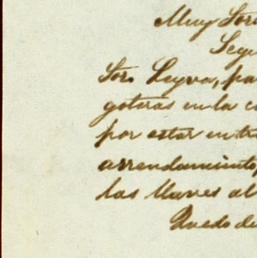 Muy Sor
Segu
Sor. Leyva, pa
goteras en la c
por estar en tra
arrendamiento,
las llaves al
Quedo de